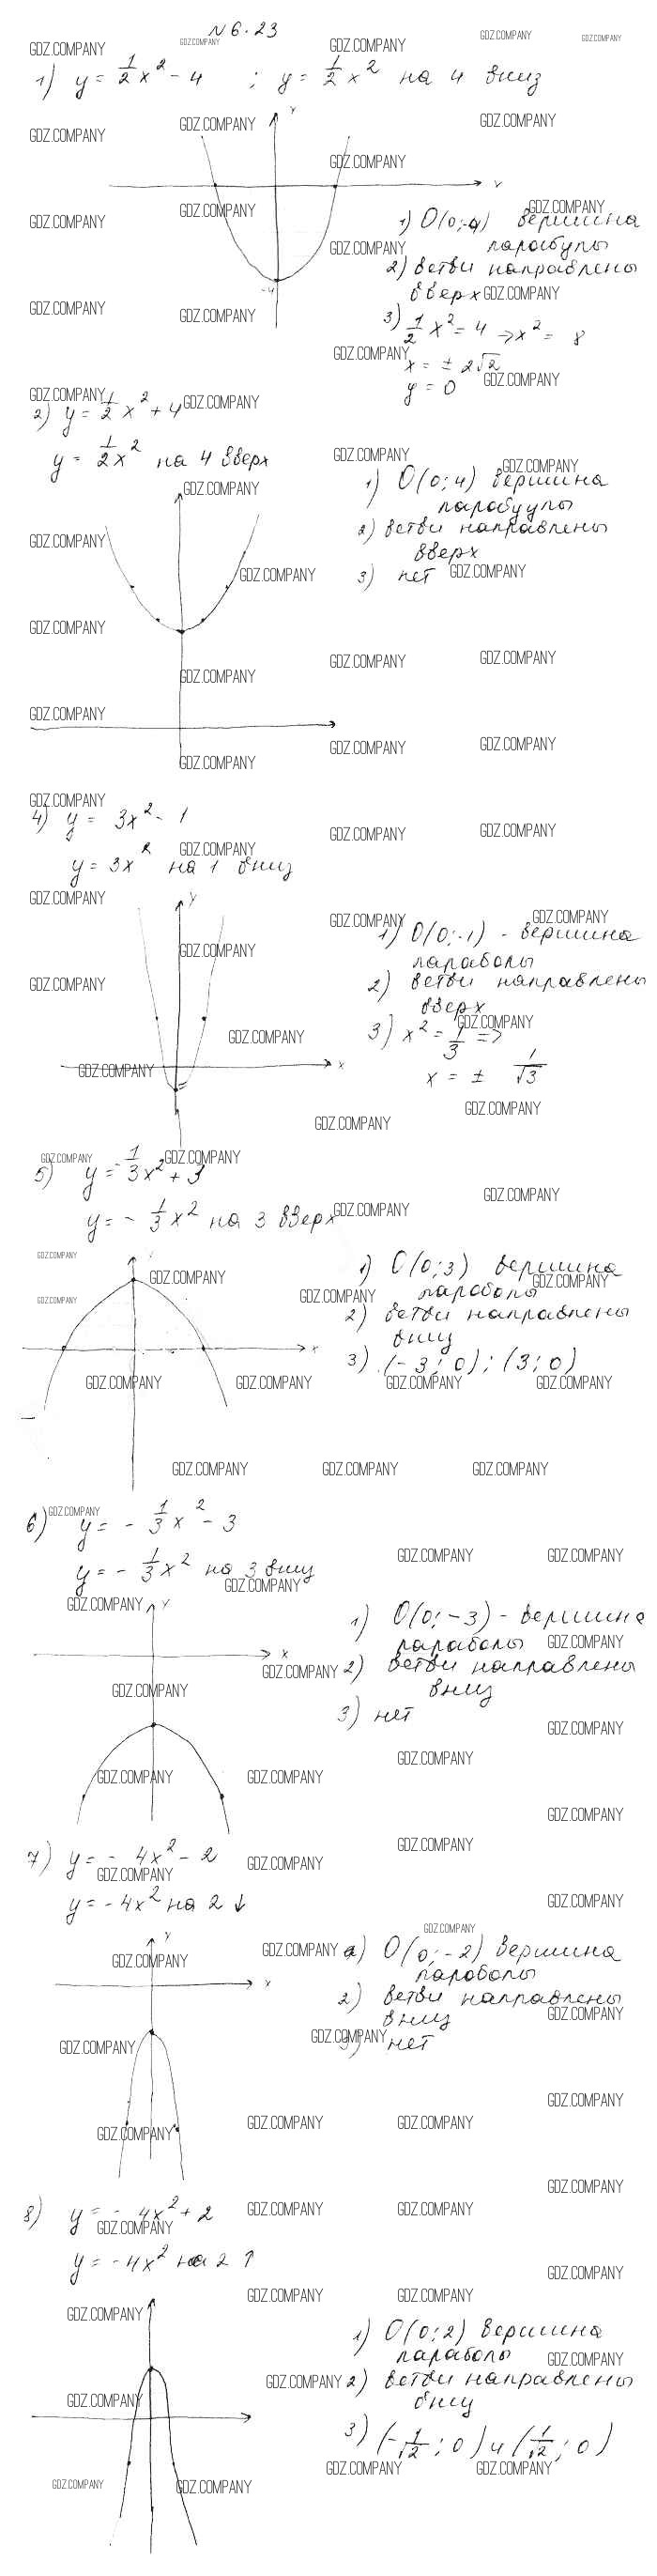 N 6.23
1) y = 1/2 x² - 4 ; y = 1/2 x² на 4 вниз
y
x
-4
1) O(0;-4) вершина
параболы
2) ветви направлены
вверх
3) 1/2 x² = 4 → x² = 8
x = ± 2√2
y = 0
2) y = 1/2 x² + 4
y = 1/2 x² на 4 вверх
1) O(0;4) вершина
параболы
2) ветви направлены
вверх
3) нет
4) y = 3x² - 1
y = 3x² на 1 вниз
y
x
1) O(0;-1) - вершина
параболы
2) ветви направлены
вверх
3) x² = 1/3 =>
x = ± 1/√3
5) y = -1/3 x² + 3
y = - 1/3 x² на 3 вверх
x
1) O(0;3) вершина
параболы
2) ветви направлены
вниз
3) (-3;0); (3;0)
6) y = - 1/3 x² - 3
y = - 1/3 x² на 3 вниз
y
x
1) O(0;-3) - вершина
параболы
2) ветви направлены
вниз
3) нет
7) y = - 4x² - 2
y = -4x² на 2 ↓
y
x
O(0;-2) вершина
параболы
2) ветви направлены
вниз
3) нет
8) y = - 4x² + 2
y = -4x² на 2 ↑
1) O(0;2) вершина
параболы
2) ветви направлены
вниз
3) (-1/√2;0) и (1/√2;0)
GDZ.COMPANY